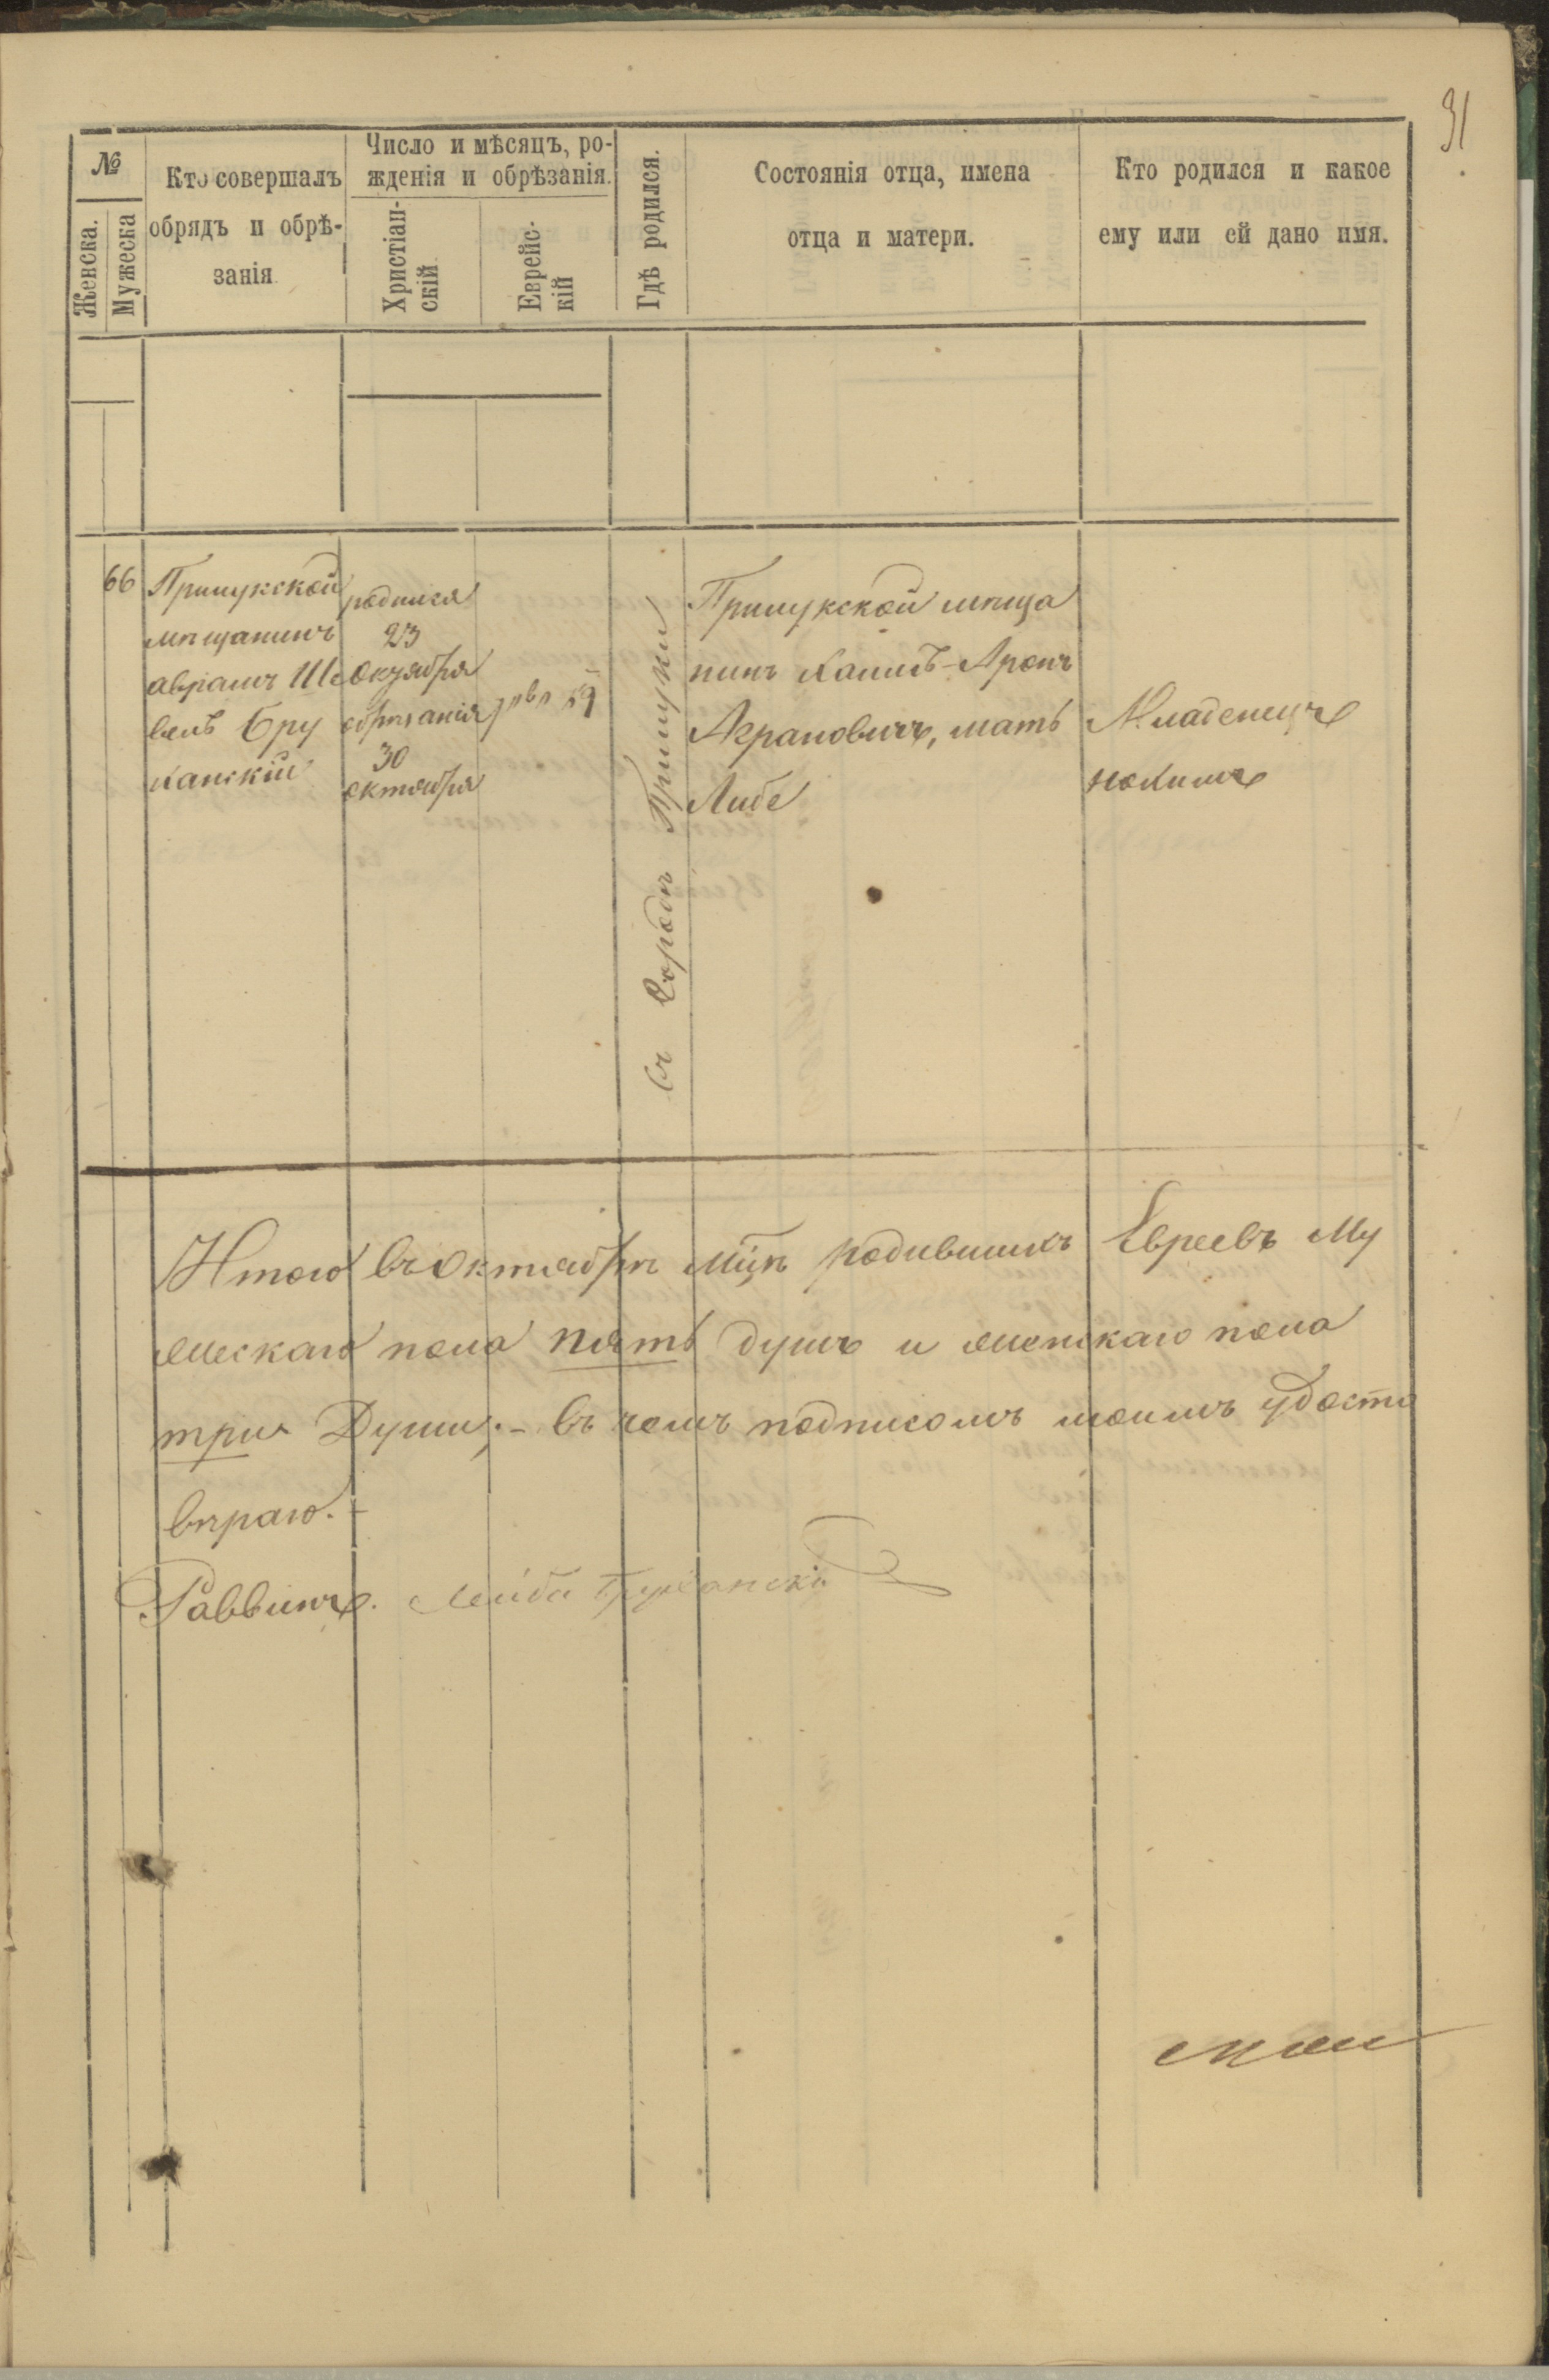 31
№
Женска.
Мужеска
Кто совершалъ
обрядъ и обрѣ-
занія
Число и мѣсяцъ, ро-
жденія и обрѣзанія.
Христіан-
скій
Еврейс-
кій
Гдѣ родился.
Состоянія отца, имена
отца и матери.
Кто родился и какое
ему или ей дано имя.
66
Прилукской
мѣщанинъ
аврамъ Ше
велъ Бру
ханскій
родился
23
Октября
обрѣзанія
30
октября
въ Городѣ Прилуки
Прилукской мѣща
нинъ Хаимъ-Аронъ
Аграновичъ, мать
Либе
Младенецъ
нохимъ
Итого въ Октябрѣ мцѣ родившихъ Евреевъ Му
жескаго пола пять душъ и женскаго пола
три Души;- въ чемъ подписомъ моимъ удосто
вѣраю.-
Раввинъ. Лейба Бруханскій